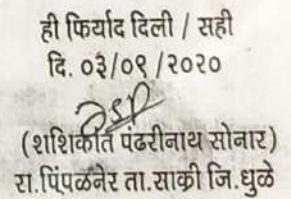 ही फिर्याद दिली / सही
दि. ०३/०९/२०२०
(शशिकांत पंढरीनाथ सोनार)
रा.पिंपळनेर ता.साक्री जि.धुळे